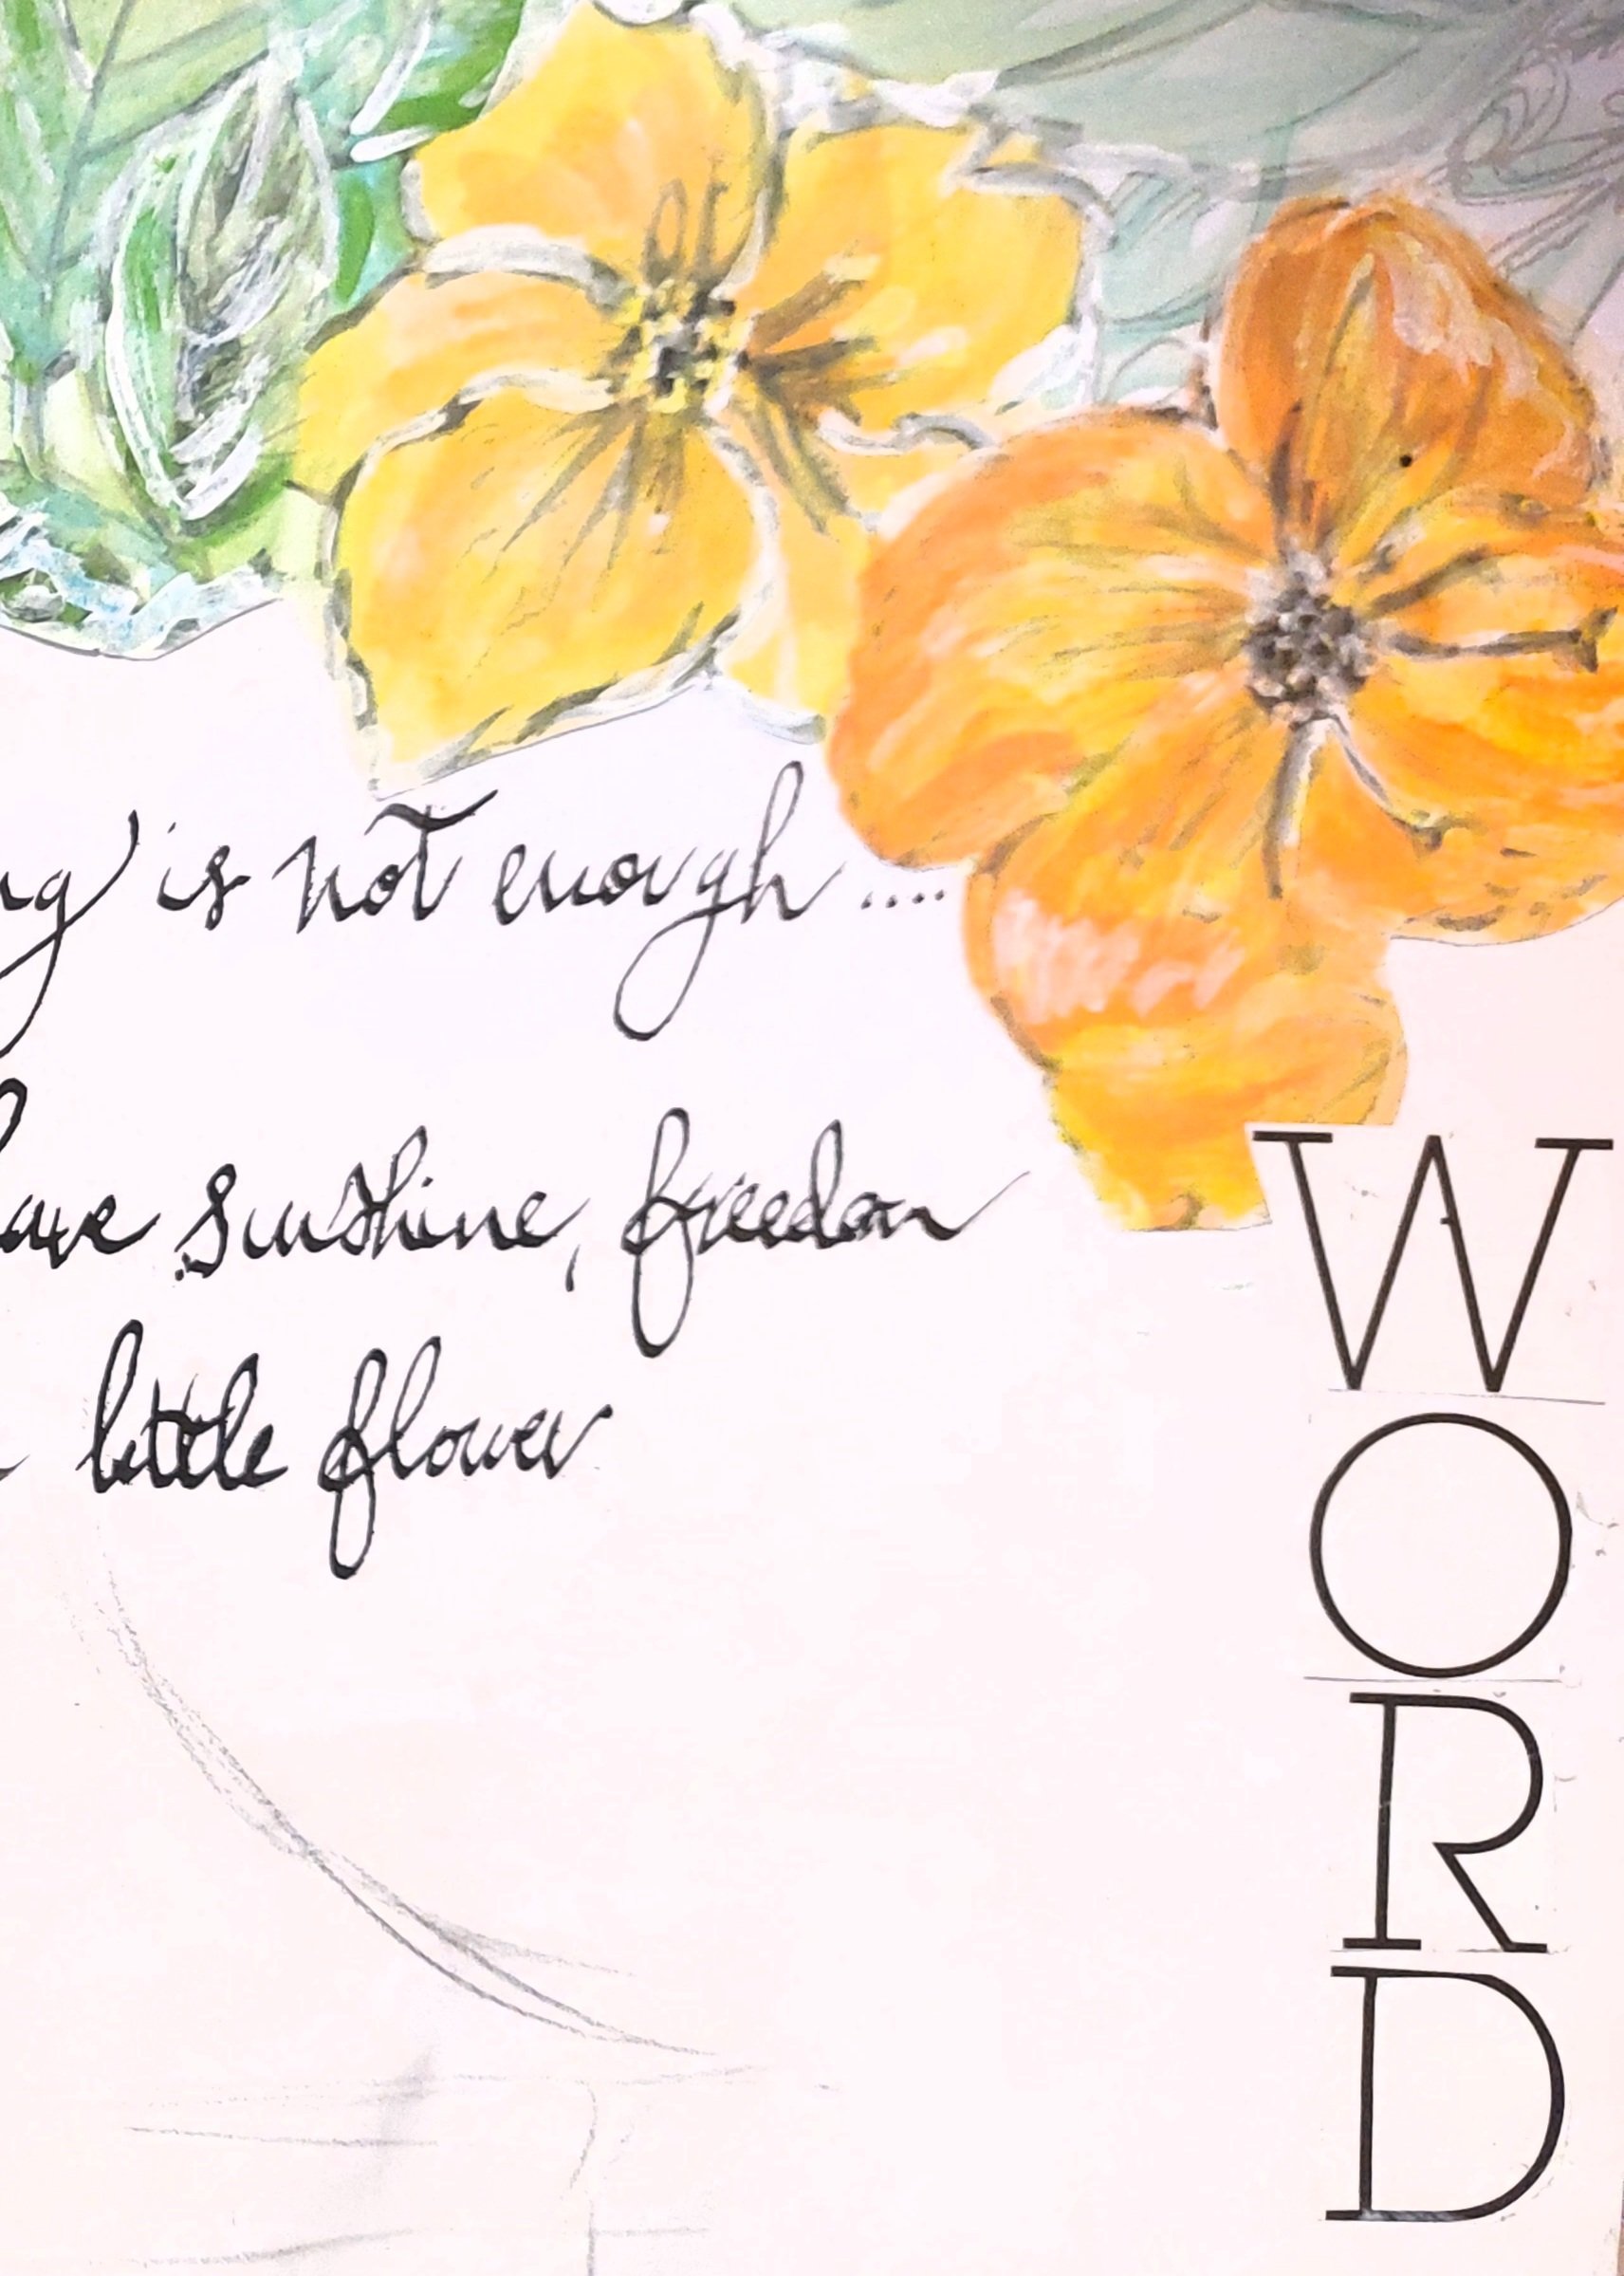 ng is not enough ....
ave sunshine, freedom
little flower
WORD